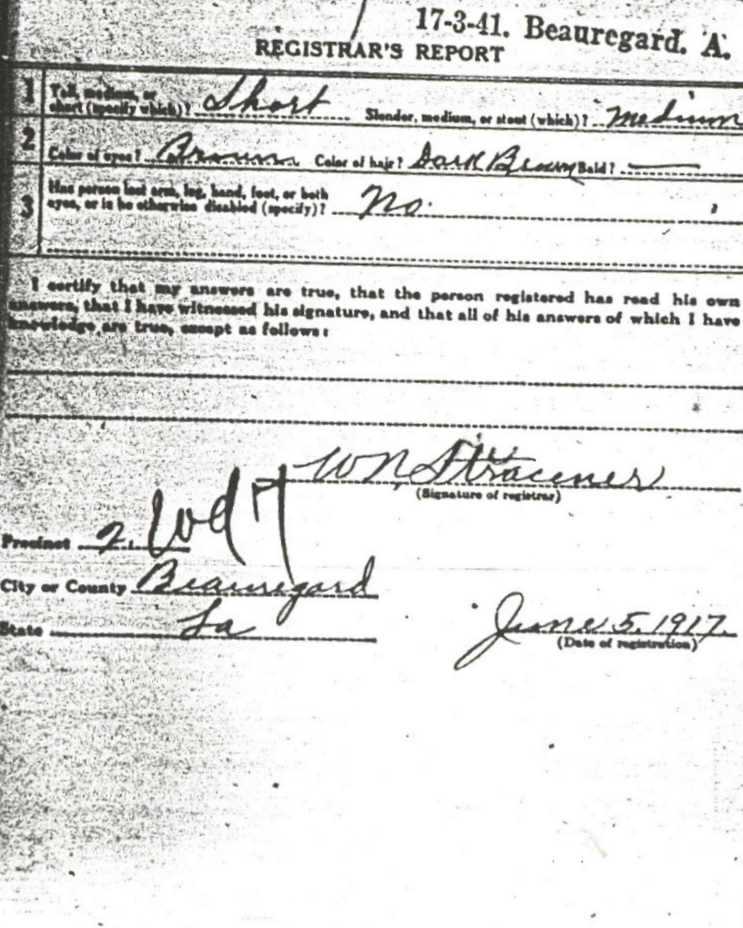 17-3-41. Beauregard. A.
REGISTRAR'S REPORT
1 Tall, medium, or
short (specify which)? Short Slender, medium, or stout (which)? Medium
2 Color of eyes? Brown Color of hair? Dark Brown Bald? —
3 Has person lost arm, leg, hand, foot, or both
eyes, or is he otherwise disabled (specify)? No.
I certify that my answers are true, that the person registered has read his own
answers, that I have witnessed his signature, and that all of his answers of which I have
knowledge are true, except as follows:
W N
(Signature of registrar)
Precinct 2. Wd 7
City or County Beauregard
State La
June 5, 1917.
(Date of registration)